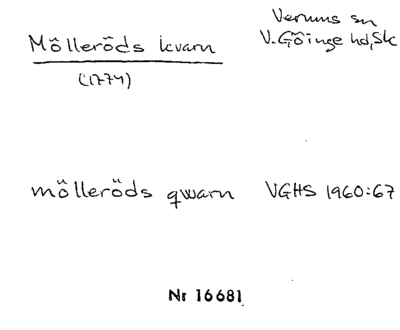 Mölleröds kvarn
(1774)
Verums sn
V. Göinge hd, Sk
mölleröds qwarn VGHS 1960:67
Nr 16681